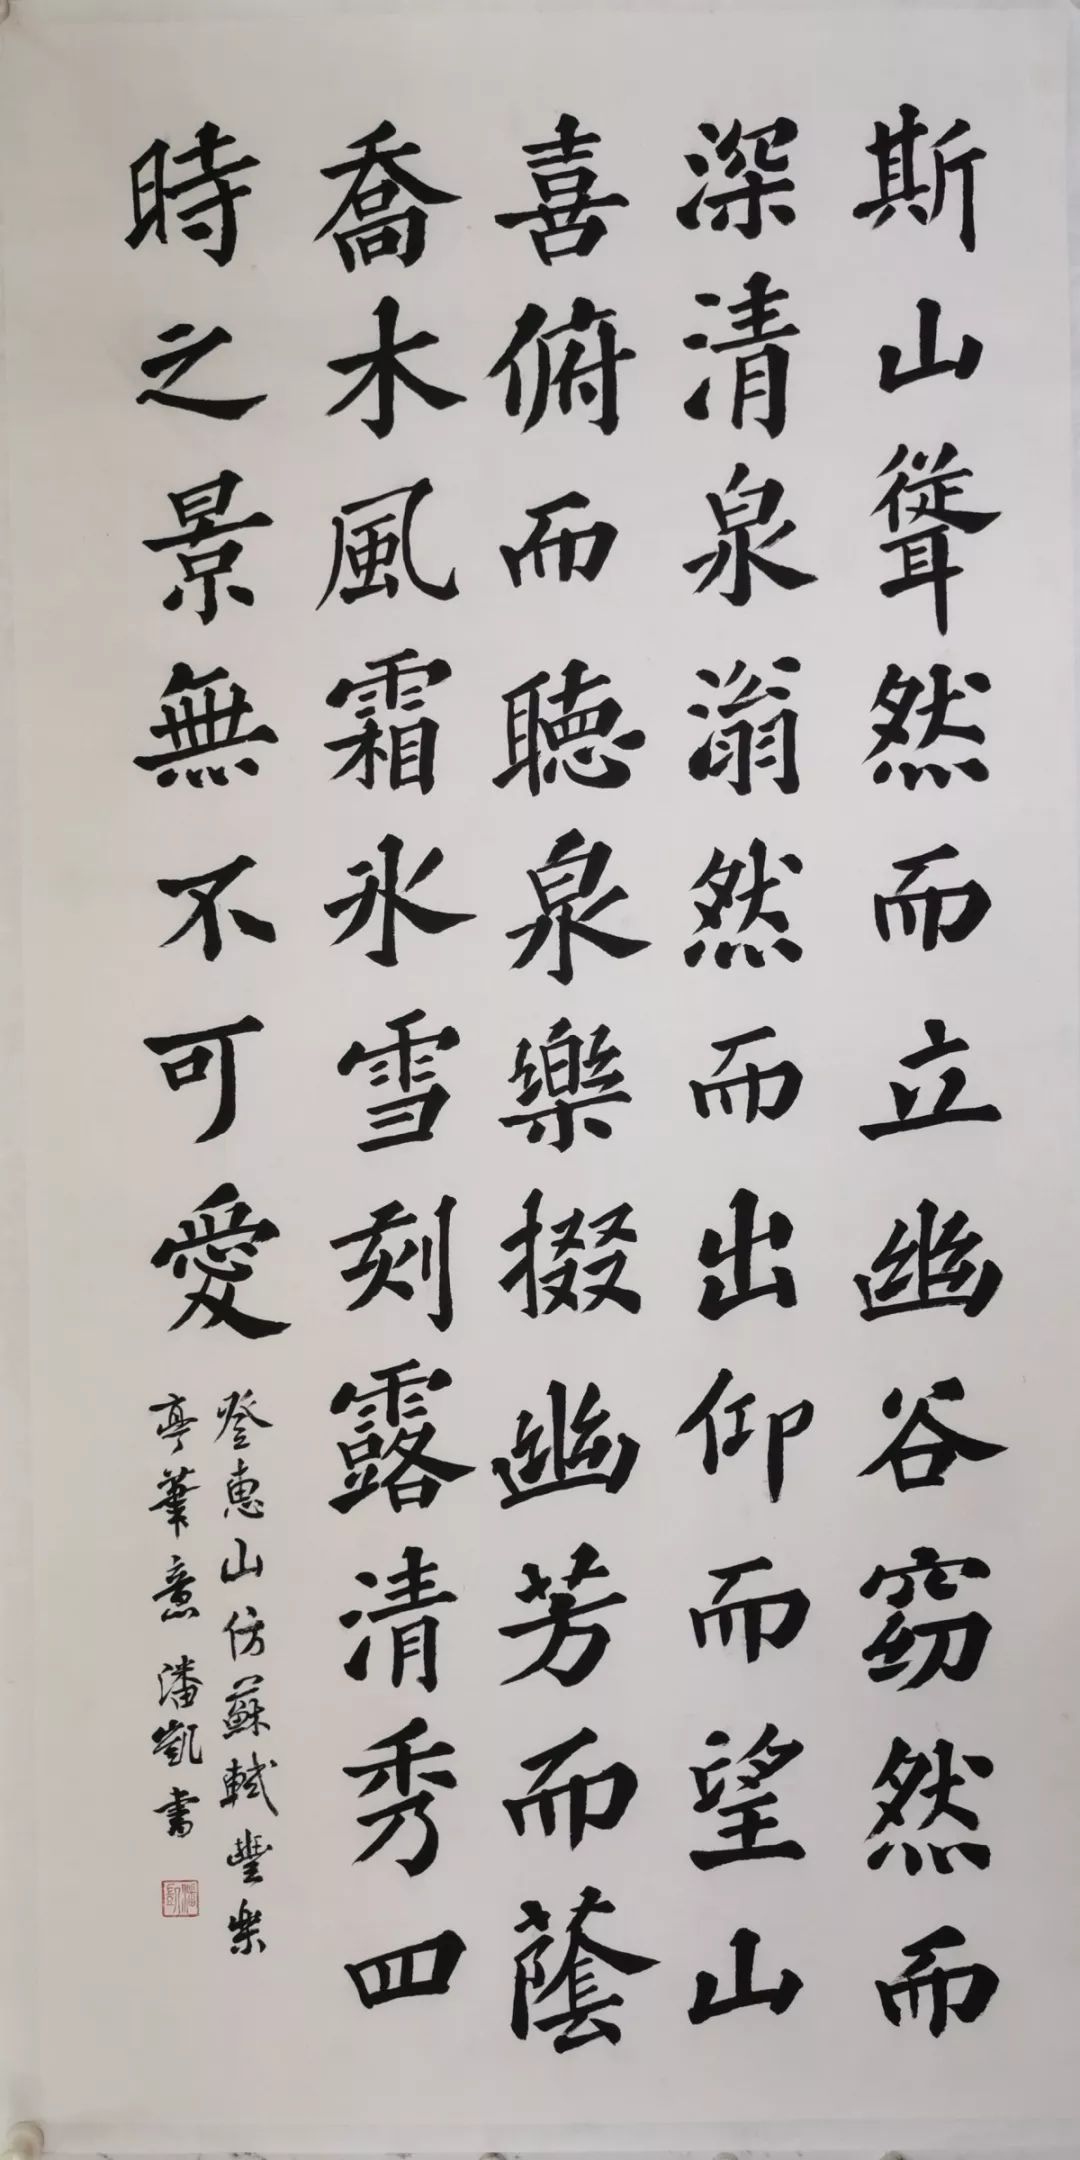 斯山聳然而立幽谷窈然而
深清泉滃然而出仰而望山
喜俯而聴泉樂掇幽芳而蔭
喬木風霜氷雪刻露清秀四
時之景無不可愛
登惠山仿蘇軾豐樂
亭筆意潘凱書
潘凱